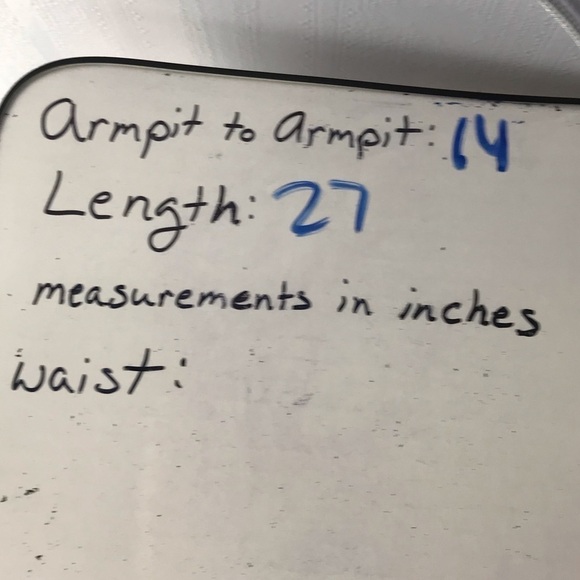 Armpit to Armpit: 14
Length: 27
measurements in inches
waist: